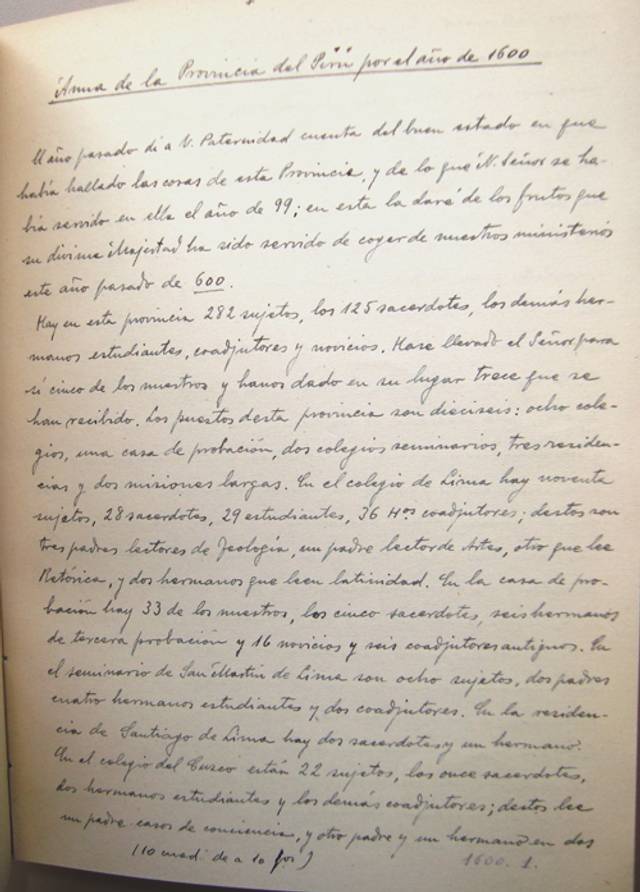 Annua de la Provincia del Pirú por el año de 1600
El año pasado di a V. Paternidad cuenta del buen estado en que
había hallado las cosas de esta Provincia, y de lo que N. Señor se ha-
bía servido en ella el año de 99; en esta la daré de los frutos que
su divina Majestad ha sido servido de coger de nuestros ministerios
este año pasado de 600.
Hay en esta provincia 282 sujetos, los 125 sacerdotes, los demás her-
manos estudiantes, coadjutores y novicios. Hase llevado el Señor para
sí cinco de los nuestros y hanos dado en su lugar trece que se
han recibido. Los puestos desta provincia son dieciseis: ocho cole-
gios, una casa de probación, dos colegios seminarios, tres residen-
cias y dos misiones largas. En el colegio de Lima hay noventa
sujetos, 28 sacerdotes, 29 estudiantes, 36 Hos coadjutores; destos son
tres padres lectores de Teología, un padre lector de Artes, otro que lee
Retórica, y dos hermanos que leen latinidad. En la casa de pro-
bación hay 33 de los nuestros, los cinco sacerdotes, seis hermanos
de tercera probación y 16 novicios y seis coadjutores antiguos. En
el seminario de San Martín de Lima son ocho sujetos, dos padres
cuatro hermanos estudiantes y dos coadjutores. En la residen-
cia de Santiago de Lima hay dos sacerdotes y un hermano.
En el colegio del Cusco están 22 sujetos, los once sacerdotes,
dos hermanos estudiantes y los demás coadjutores; destos lee
un padre casos de conciencia, y otro padre y un hermano en dos
1600. 1.